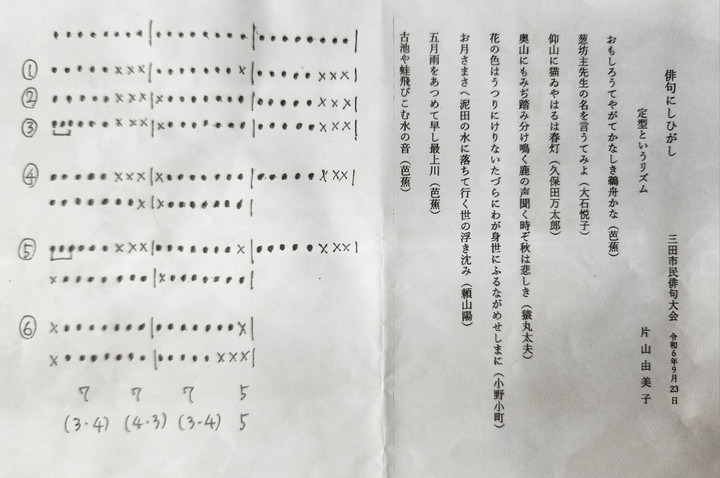 俳句にしひがし　三田市民俳句大会　令和6年9月23日
定型というリズム　片山由美子
おもしろうてやがてかなしき鵜舟かな（芭蕉）
葱坊主先生の名を言うてみよ（大石悦子）
仰山に猫ゐやはるは春灯（久保田万太郎）
奥山にもみぢ踏み分け鳴く鹿の声聞く時ぞ秋は悲しき（猿丸太夫）
花の色はうつりにけりないたづらにわが身世にふるながめせしまに（小野小町）
お月さまさへ泥田の水に落ちて行く世の浮き沈み（頼山陽）
五月雨をあつめて早し最上川（芭蕉）
古池や蛙飛びこむ水の音（芭蕉）
①
②
③
④
⑤
⑥
7 7 7 5
(3・4) (4・3) (3・4) 5